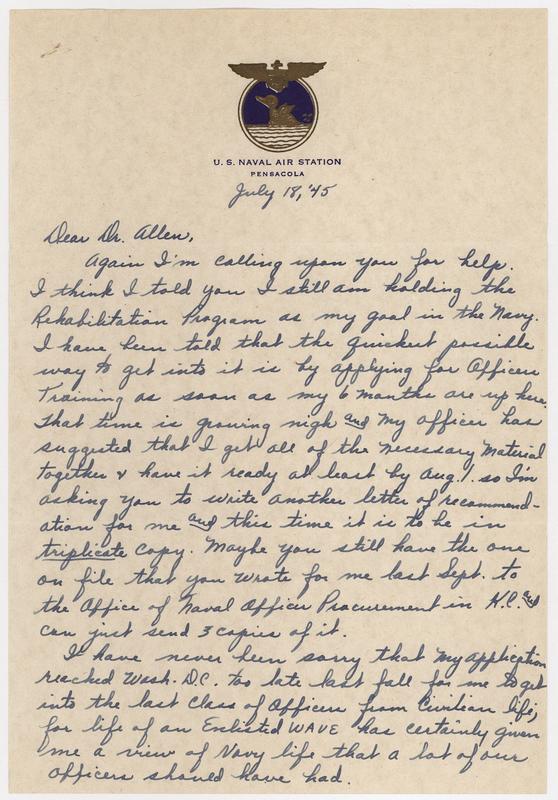 U. S. NAVAL AIR STATION
PENSACOLA
July 18, '45
Dear Dr. Allen,
Again I'm calling upon you for help.
I think I told you I still am holding the
Rehabilitation Program as my goal in the Navy.
I have been told that the quickest possible
way to get into it is by applying for Officer
Training as soon as my 6 months are up here.
That time is growing nigh and my officer has
suggested that I get all of the necessary material
together & have it ready at least by Aug. 1. so I'm
asking you to write another letter of recommend-
ation for me and this time it is to be in
triplicate copy. Maybe you still have the one
on file that you wrote for me last Sept. to
the Office of Naval Officer Procurement in K.C. and
can just send 3 copies of it.
I have never been sorry that my application
reached Wash. D.C. too late last fall for me to get
into the last class of Officers from Civilian life;
for life of an Enlisted WAVE has certainly given
me a view of Navy life that a lot of our
officers should have had.